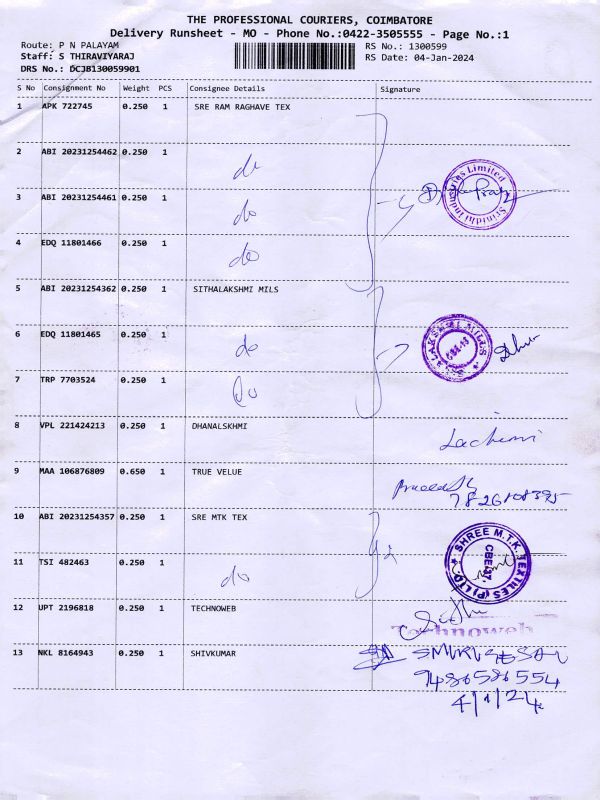 THE PROFESSIONAL COURIERS, COIMBATORE
Delivery Runsheet - MO - Phone No.:0422-3505555 - Page No.:1
Route: P N PALAYAM RS No.: 1300599
Staff: S THIRAVIYARAJ RS Date: 04-Jan-2024
DRS No.: DCJB130059901
S No Consignment No Weight PCS Consignee Details Signature
1 APK 722745 0.250 1 SRE RAM RAGHAVE TEX
2 ABI 20231254462 0.250 1 do
3 ABI 20231254461 0.250 1 do
Srinidhi Industries Limited
4 EDQ 11801466 0.250 1 do
5 ABI 20231254362 0.250 1 SITHALAKSHMI MILS
6 EDQ 11801465 0.250 1 do
LAKSHMI MILLS
7 TRP 7703524 0.250 1 Do
8 VPL 221424213 0.250 1 DHANALSKHMI
9 MAA 106876809 0.650 1 TRUE VELUE
10 ABI 20231254357 0.250 1 SRE MTK TEX
11 TSI 482463 0.250 1 do
SHREE M.T.K. TEXTILES (P) LTD. CBE-37
12 UPT 2196818 0.250 1 TECHNOWEB
Technoweb
13 NKL 8164943 0.250 1 SHIVKUMAR
9486586554
4/1/24